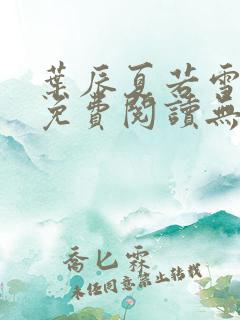 葉辰夏若雪
免費閱讀無
喬匕霖
未經同意禁止轉載